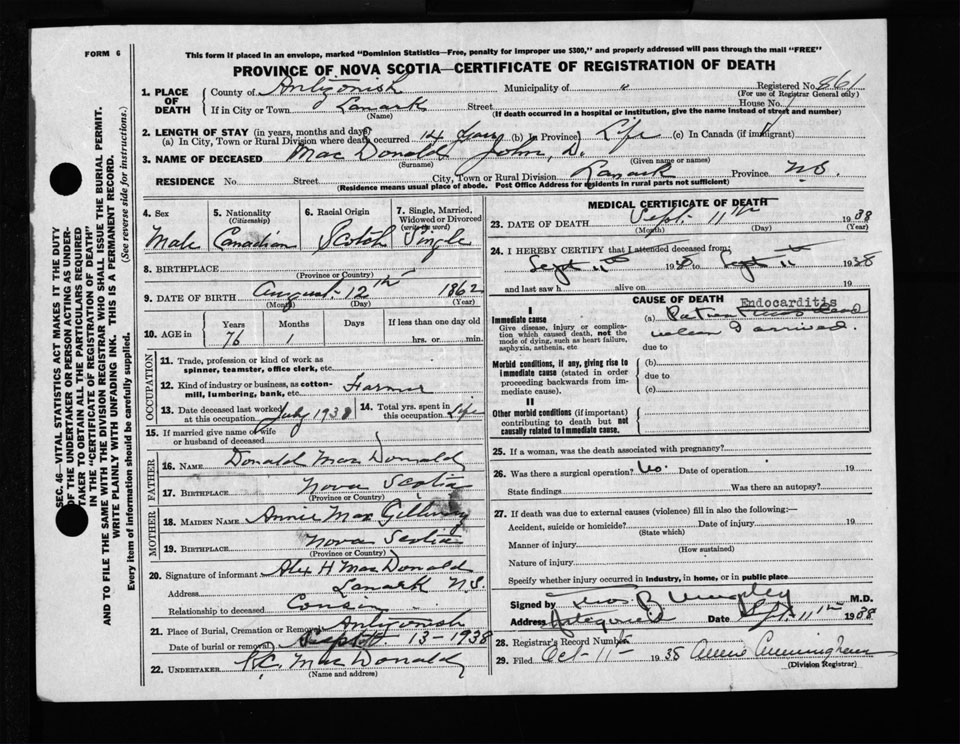 FORM 6
This form if placed in an envelope, marked "Dominion Statistics—Free, penalty for improper use $300," and properly addressed will pass through the mail "FREE"
PROVINCE OF NOVA SCOTIA—CERTIFICATE OF REGISTRATION OF DEATH
SEC. 46—VITAL STATISTICS ACT MAKES IT THE DUTY
OF THE UNDERTAKER OR PERSON ACTING AS UNDER-
TAKER TO OBTAIN ALL THE PARTICULARS REQUIRED
IN THE "CERTIFICATE OF REGISTRATION OF DEATH"
AND TO FILE THE SAME WITH THE DIVISION REGISTRAR WHO SHALL ISSUE THE BURIAL PERMIT.
WRITE PLAINLY WITH UNFADING INK. THIS IS A PERMANENT RECORD.
Every item of information should be carefully supplied. (See reverse side for instructions.)
1. PLACE OF DEATH
County of Antigonish Municipality of " Registered No. 861
(For use of Registrar General only)
If in City or Town Lanark Street House No.
(Name) (If death occurred in a hospital or institution, give the name instead of street and number)
2. LENGTH OF STAY (in years, months and days)
(a) In City, Town or Rural Division where death occurred 14 years (b) In Province Life (c) In Canada (if immigrant)
3. NAME OF DECEASED MacDonald John, D.
(Surname) (Given name or names)
RESIDENCE No. Street City, Town or Rural Division Lanark Province N.S.
(Residence means usual place of abode. Post Office Address for residents in rural parts not sufficient)
4. Sex 5. Nationality (Citizenship) 6. Racial Origin 7. Single, Married, Widowed or Divorced (write the word)
Male Canadian Scotch Single
8. BIRTHPLACE
(Province or Country)
9. DATE OF BIRTH August 12th 1862
(Month) (Day) (Year)
10. AGE in Years Months Days If less than one day old
76 1 hrs. or min.
OCCUPATION
11. Trade, profession or kind of work as
spinner, teamster, office clerk, etc.
12. Kind of industry or business, as cotton-
mill, lumbering, bank, etc. Farmer
13. Date deceased last worked at this occupation July 1938 14. Total yrs. spent in this occupation Life
15. If married give name of wife
or husband of deceased
FATHER
16. NAME Donald MacDonald
17. BIRTHPLACE Nova Scotia
(Province or Country)
MOTHER
18. MAIDEN NAME Annie MacGillivray
19. BIRTHPLACE Nova Scotia
(Province or Country)
20. Signature of informant Alex H MacDonald
Address Lanark N.S.
Relationship to deceased Cousin
21. Place of Burial, Cremation or Removal Antigonish
Date of burial or removal Sept 13-1938
22. UNDERTAKER MacDonald
(Name and address)
MEDICAL CERTIFICATE OF DEATH
23. DATE OF DEATH Sept. 11th 1938
(Month) (Day) (Year)
24. I HEREBY CERTIFY that I attended deceased from:
Sept 11th 1938 to Sept 11th 1938
and last saw h alive on 19
CAUSE OF DEATH Endocarditis
I
Immediate cause
Give disease, injury or complica-
tion which caused death, not the
mode of dying, such as heart failure,
asphyxia, asthenia, etc
(a) Patient was dead
when I arrived.
due to
Morbid conditions, if any, giving rise to
immediate cause (stated in order
proceeding backwards from im-
mediate cause).
(b)
due to
(c)
II
Other morbid conditions (if important)
contributing to death but not
causally related to immediate cause.
25. If a woman, was the death associated with pregnancy?
26. Was there a surgical operation? No. Date of operation 19
State findings Was there an autopsy?
27. If death was due to external causes (violence) fill in also the following:—
Accident, suicide or homicide? Date of injury 19
(State which)
Manner of injury
(How sustained)
Nature of injury
Specify whether injury occurred in industry, in home, or in public place
Signed by M.D.
Address Antigonish Date Sept. 11th 1938
28. Registrar's Record Number
29. Filed Oct-11- 1938 Annie Cunningham
(Division Registrar)